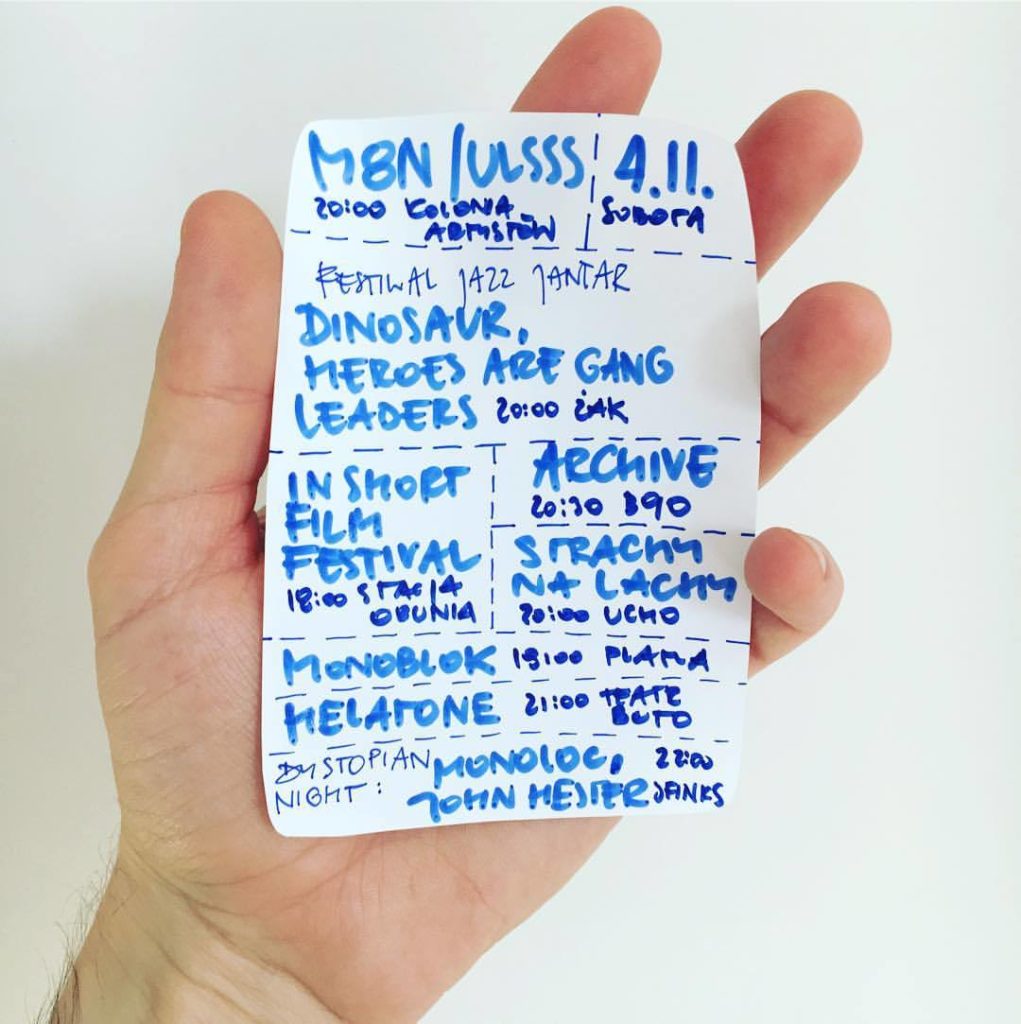 M8N/ULSSS
20:00 KOLONIA
ARTYSTÓW
4.11.
SOBOTA
FESTIWAL JAZZ JANTAR
DINOSAUR,
HEROES ARE GANG
LEADERS 20:00 ŻAK
IN SHORT
FILM
FESTIVAL
18:00 STACJA
ORUNIA
ARCHIVE
20:30 B90
STRACHY
NA LACHY
20:00 UCHO
MONOBLOK 19:00 PLAMA
MELATONE 21:00 TEATR
BOTO
DYSTOPIAN
NIGHT:
MONOLOC, 22:00
JOHN HESTER SFINKS